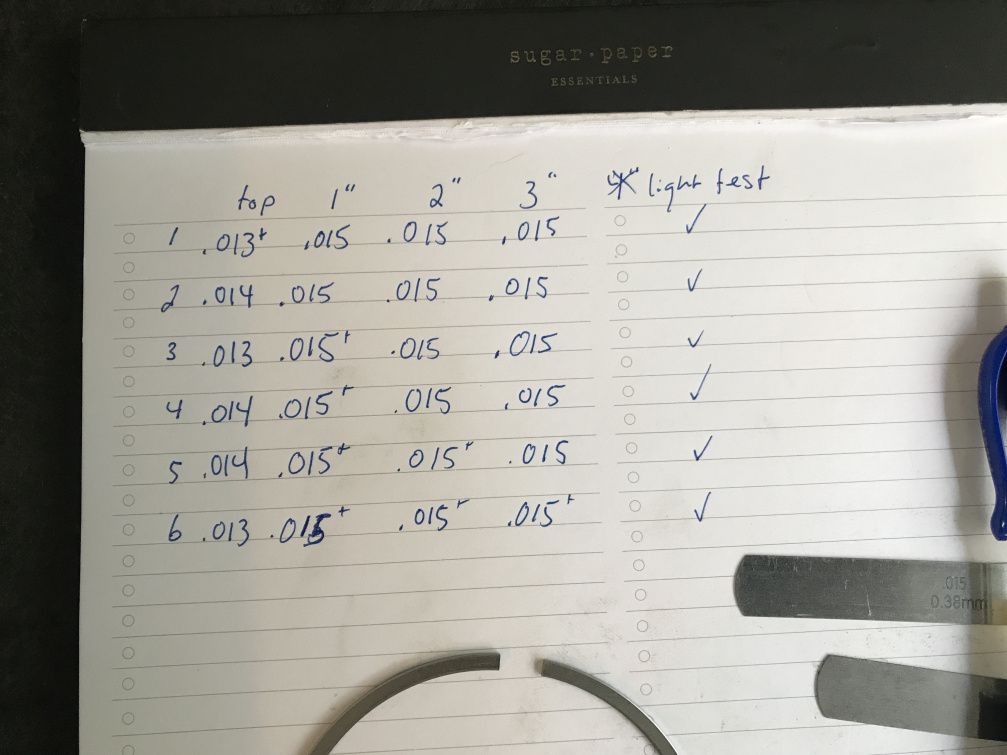 sugar·paper
ESSENTIALS
top 1" 2" 3" * light test
1 .013+ .015 .015 .015 ✓
2 .014 .015 .015 .015 ✓
3 .013 .015+ .015 .015 ✓
4 .014 .015+ .015 .015 ✓
5 .014 .015+ .015+ .015 ✓
6 .013 .015+ .015+ .015+ ✓
.015
0.38mm